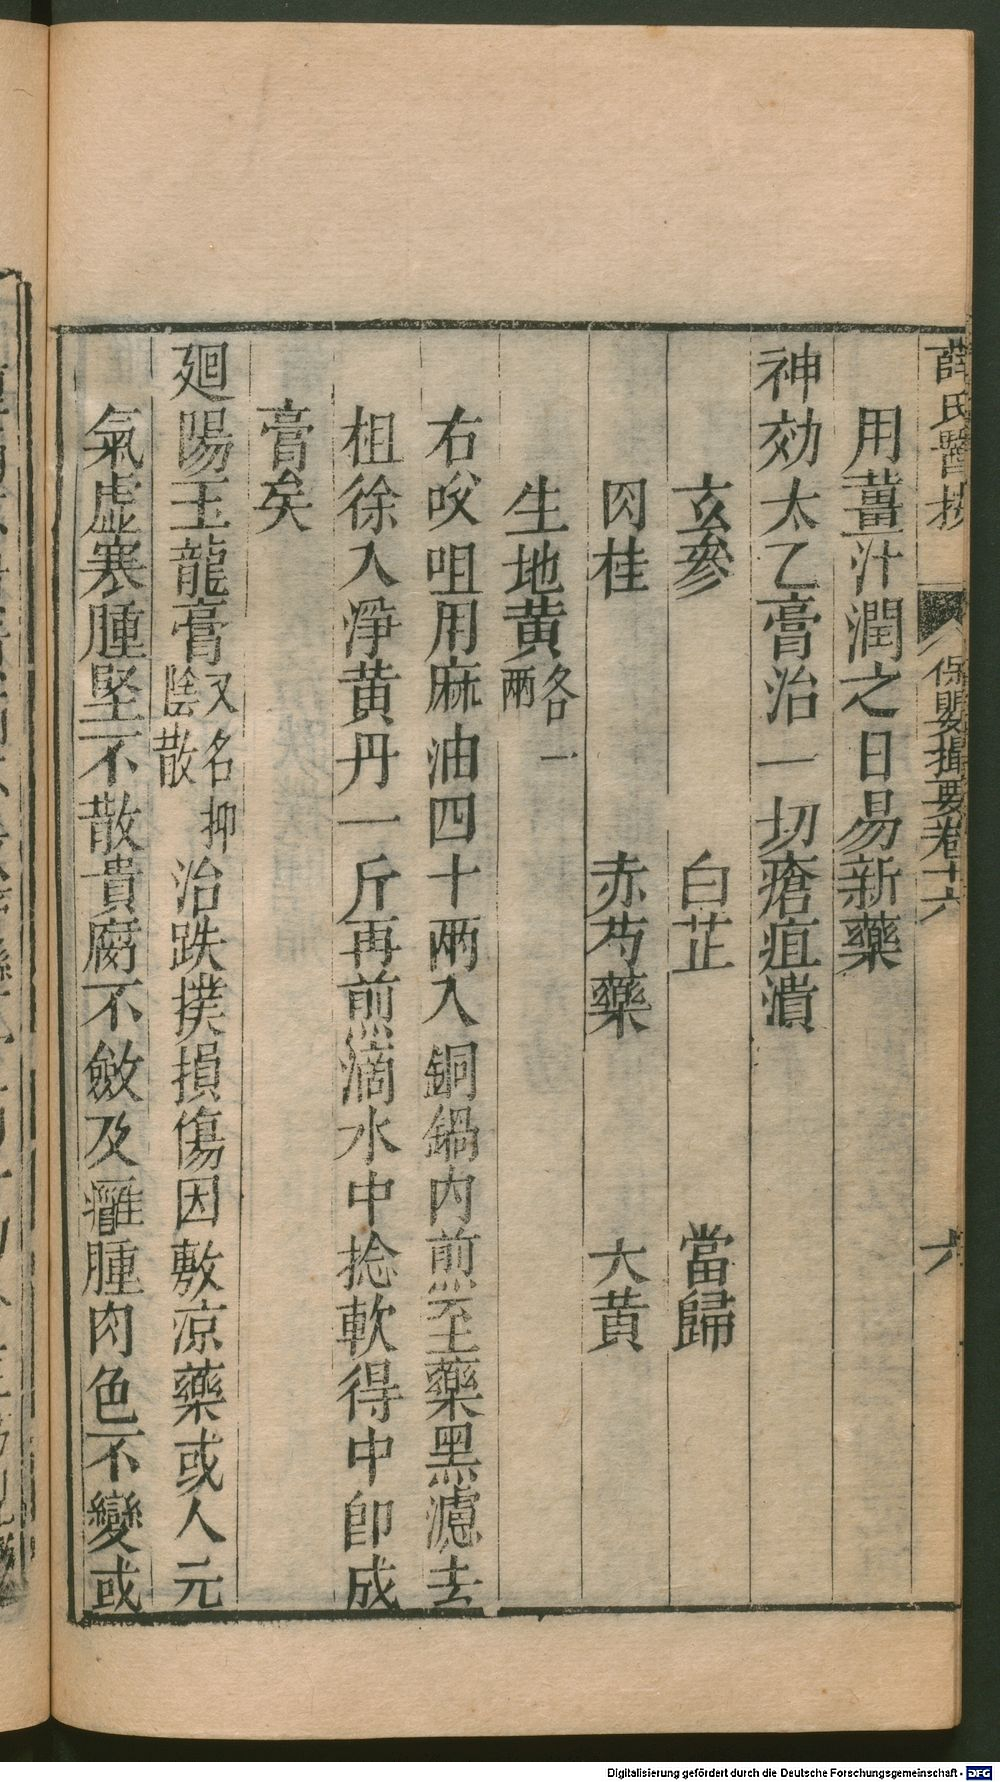 薛氏醫按 保嬰撮要卷十六 六
用薑汁潤之日易新藥
神効太乙膏治一切瘡疽潰
玄參 白芷 當歸
肉桂 赤芍藥 大黃
生地黃各一兩
右㕮咀用麻油四十兩入銅鍋內煎至藥黑濾去
柤徐入淨黃丹一斤再煎滴水中捻軟得中卽成
膏矣
廻陽玉龍膏又名抑陰散治跌撲損傷因敷凉藥或人元
氣虛寒腫堅不散貴腐不斂及癰腫肉色不變或
Digitalisierung gefördert durch die Deutsche Forschungsgemeinschaft - DFG